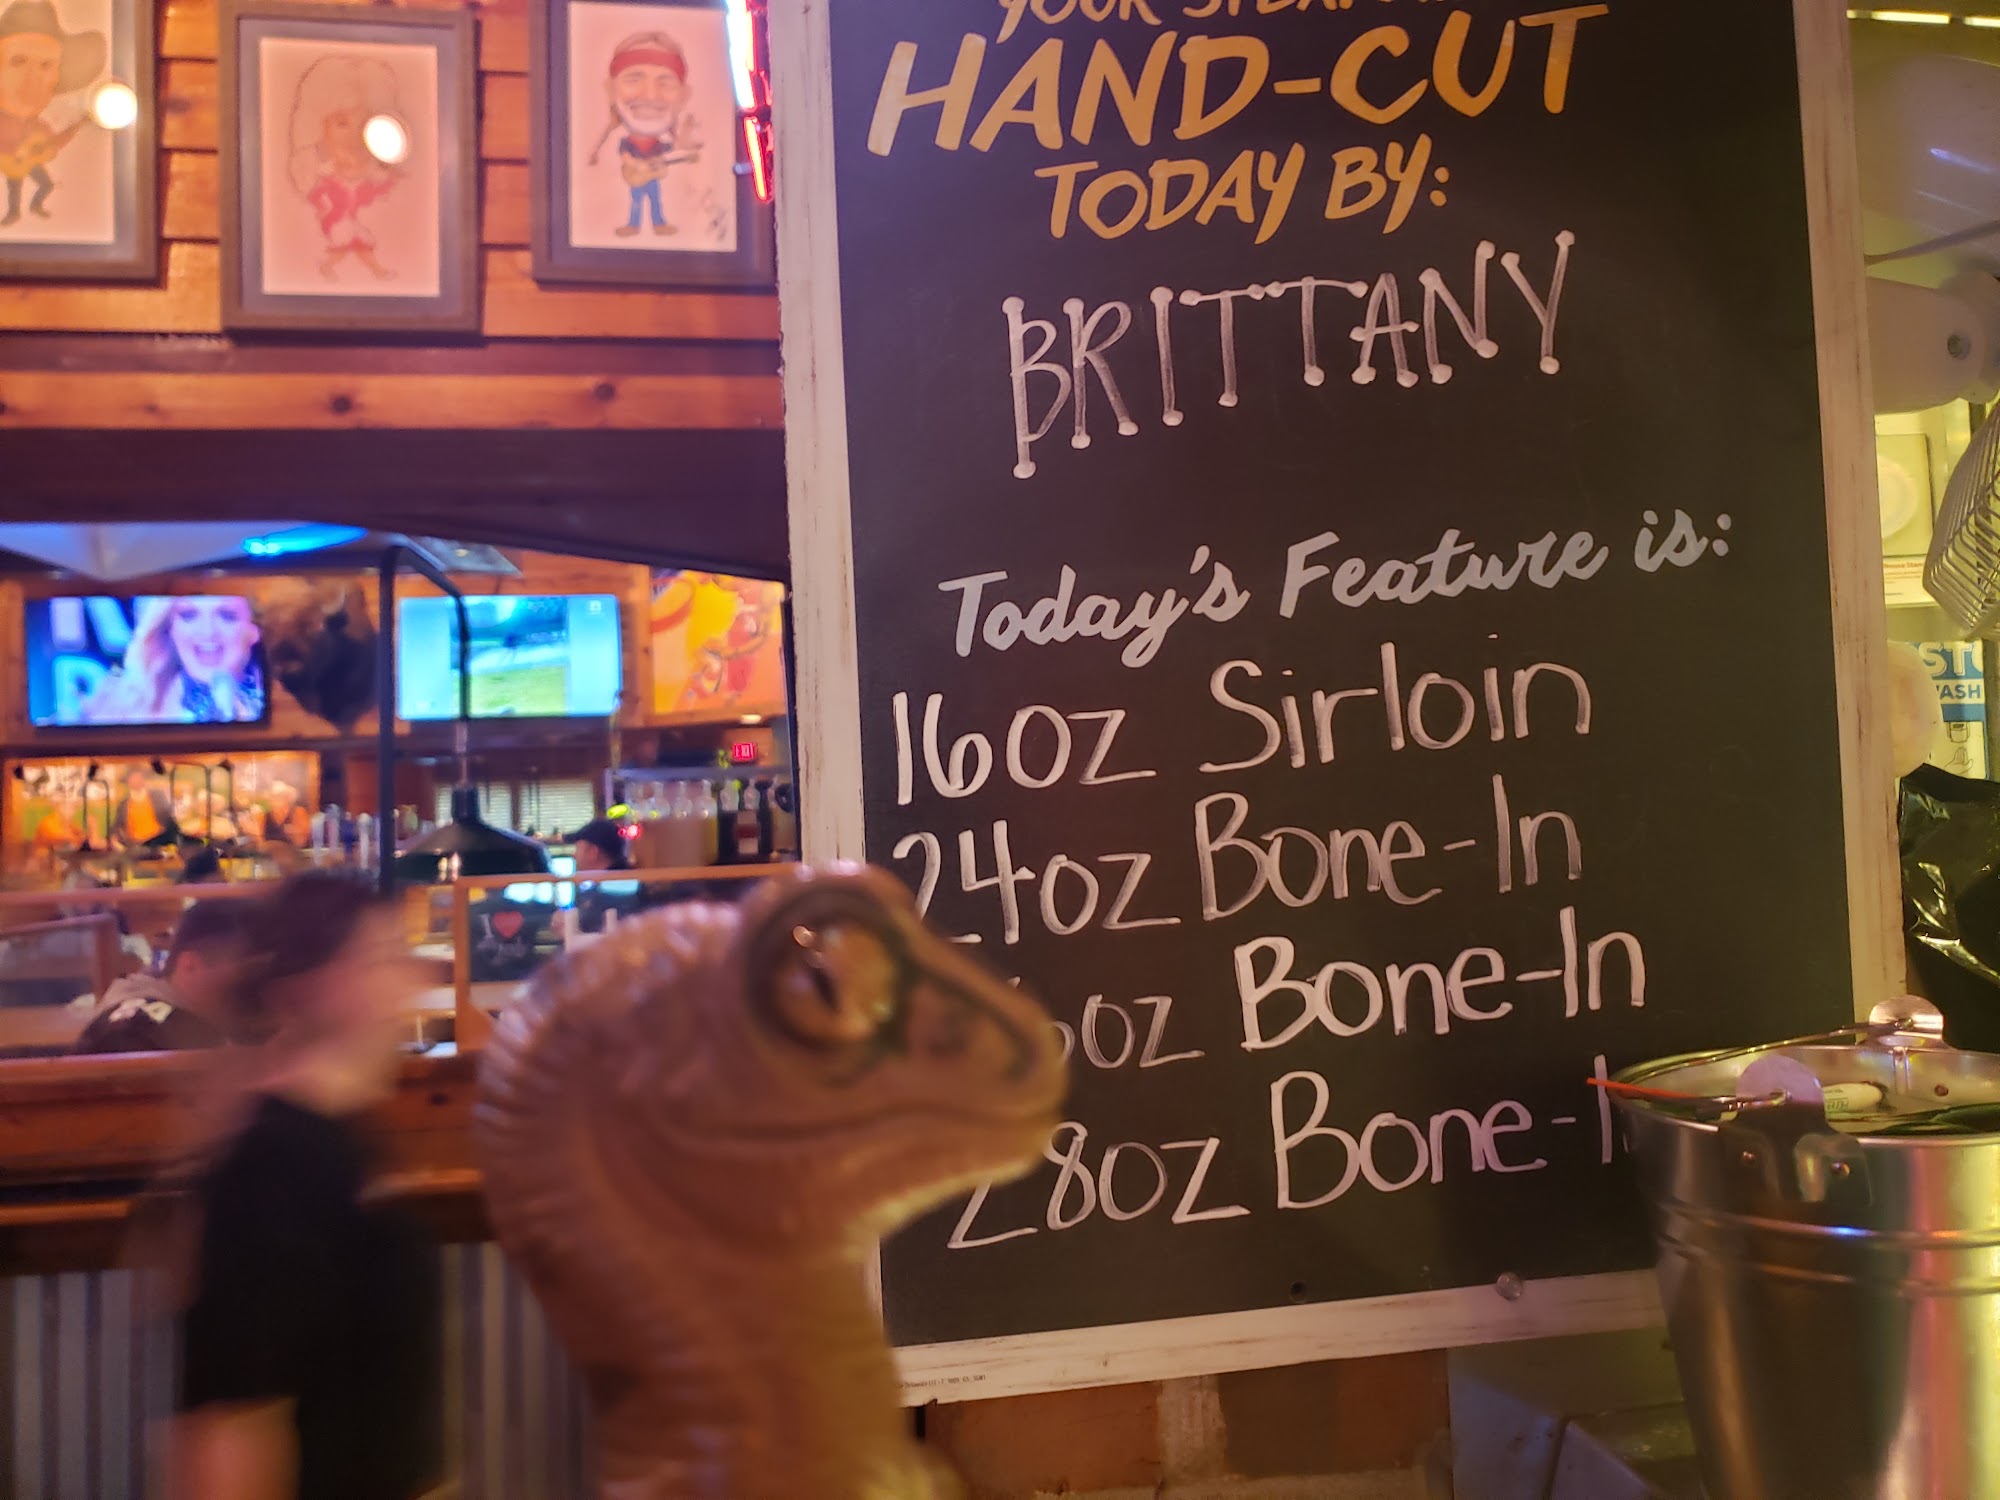 HAND-CUT
TODAY BY:
BRITTANY
Today's Feature is:
16oz Sirloin
24oz Bone-In
oz Bone-In
28oz Bone-I